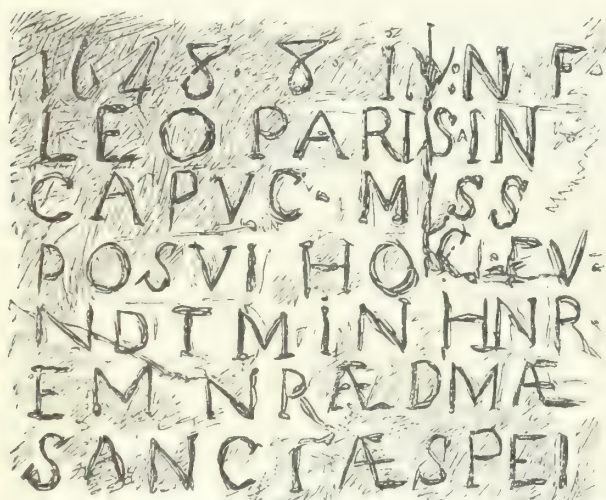 1648· 8 IVN F·
LEO PARISIN
CAPVC· MISS
POSVI HOC FV·
NDTM IN HNR·
EM NRÆ DMÆ
SANCTÆ SPEI